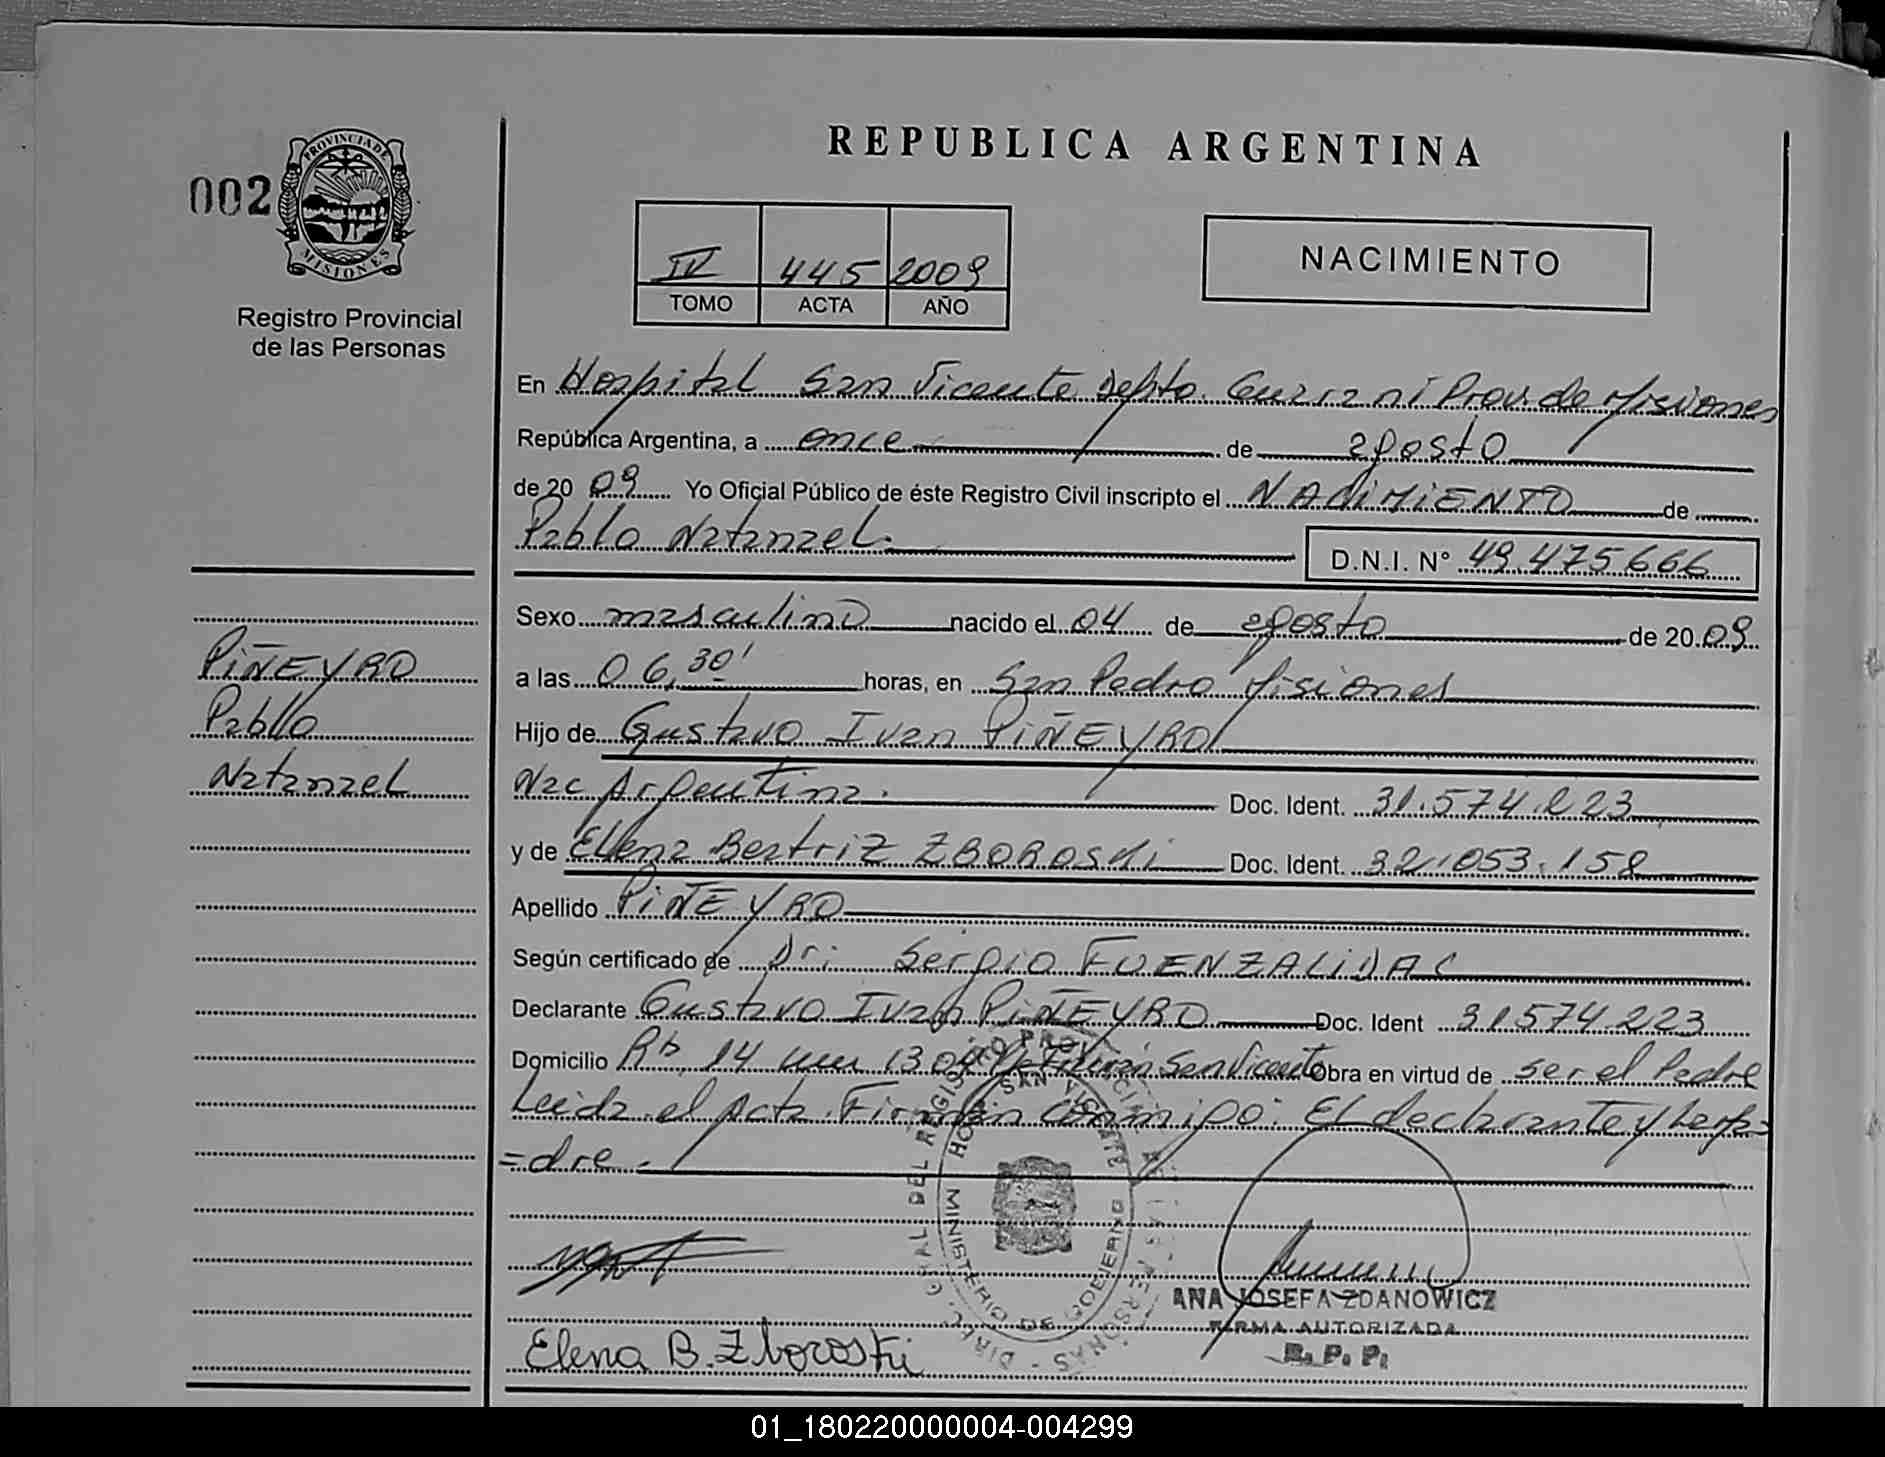 REPUBLICA ARGENTINA
002
PROVINCIA DE
MISIONES
Registro Provincial
de las Personas
IV 445 2009
TOMO ACTA AÑO
NACIMIENTO
En Hospital San Vicente Depto. Guaraní Prov. de Misiones
República Argentina, a once de agosto
de 20 09 Yo Oficial Público de éste Registro Civil inscripto el NACIMIENTO de
Pablo Natanael.
D.N.I. Nº 49.475.666
Sexo masculino nacido el 04 de agosto de 20 09
a las 06,30' horas, en San Pedro Misiones
Hijo de Gustavo Ivan PIÑEYRO
Nac Argentina. Doc. Ident. 31.574.223
y de Elena Beatriz ZBOROSKI Doc. Ident. 32.053.158
Apellido PIÑEYRO
Según certificado de Dr: Sergio FUENZALIDA C
Declarante Gustavo Ivan PIÑEYRO Doc. Ident 31574.223
Domicilio 14 San Vicente Obra en virtud de ser el Padre
Leida el Acta Firman conmigo: El declarante y la
=dre.
PIÑEYRO
Pablo
Natanael
HOSP. SAN VICENTE
MINISTERIO DE GOBIERNO
ANA JOSEFA ZDANOWICZ
FIRMA AUTORIZADA
R. P. P.
Elena B. Zboroski
01_180220000004-004299